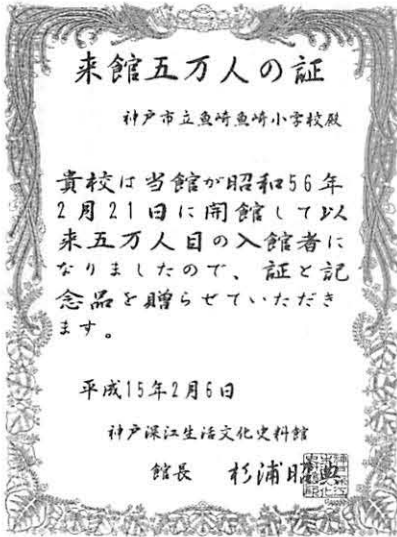 来館五万人の証
神戸市立魚崎魚崎小学校殿
貴校は当館が昭和56年
2月21日に開館して以
来五万人目の入館者に
なりましたので、証と記
念品を贈らせていただき
ます。
平成15年2月6日
神戸深江生活文化史料館
館長 杉浦昭典